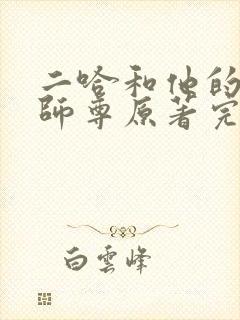 二哈和他的
師尊原著完
白雲峰